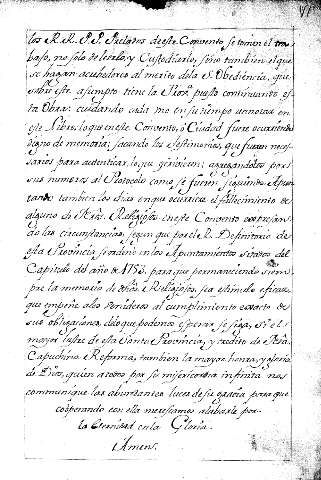 los R.R. P.P. Prelados de este Convento, se tomen el tra-
bajo, no solo de leerlo, y Custodiarlo, sino tambien el que
se hagan acrehedores al merito de la S. Obediencia, que
sobre este asumpto tiene la puesto continuando es-
ta Obra: cuidando cada uno en su tiempo annotar en
este Libro, lo que en este Convento, ó Ciudad fuere ocurriendo
digno de memoria; sacando los Testimonios, que fueren neces-
sarios para autenticar, lo que ; agregandolos por
sus numeros al Protocolo como se fueren siguiendo: Apun-
tando tambien los dias en que ocurriere el fallecimiento de
alguno de Ntros. Religiosos en este Convento expressan-
do las circunstancias, segun que por el R. Definitorio de
esta Provincia, se ordenó en los Apuntamientos secretos del
Capitulo del año de 1753. para que permaneciendo siem-
pre la memoria de dichos Religiosos, sea estimulo eficaz,
que empeñe a los venideros al cumplimiento exacto de
sus obligaciones, de lo que podemos esperar se siga, Si el
mayor lustre de esta Santa Provincia, y credito de Ntra.
Capuchina Reforma, tambien la mayor honra, y gloria
de Dios, quien a todos por su misericordia infinita nos
communique las abundantes luces de su gracia para que
cooperando con ella merescamos alabarle por
la Eternidad en la Gloria.
Amen.